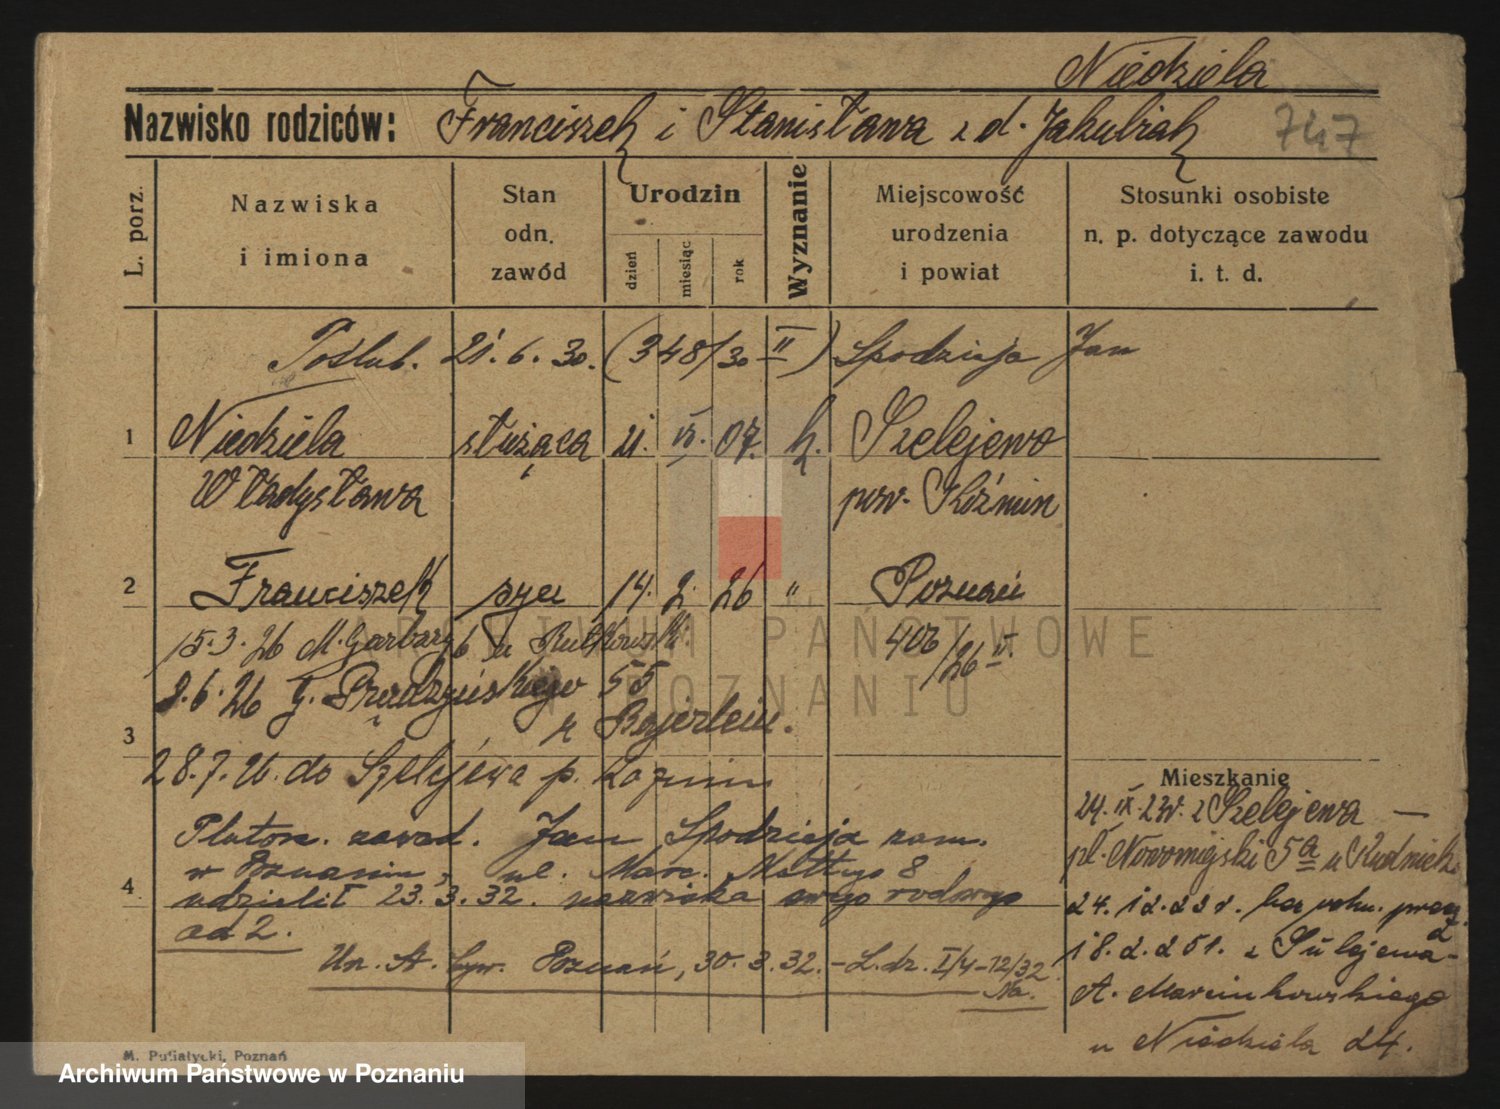 Niedziela
Nazwisko rodziców: Franciszek i Stanisława z d. Jakubiak 747
L. porz.
Nazwiska
i imiona
Stan
odn.
zawód
Urodzin
dzień
miesiąc
rok
Wyznanie
Miejscowość
urodzenia
i powiat
Stosunki osobiste
n. p. dotyczące zawodu
i. t. d.
Poślub. 21. 6. 30. (348/30 II) Spodzieja Jan
1 Niedziela służąca 21. VI. 07. k. Szelejewo
Władysława pow. Koźmin
2 Franciszek syn 14. 2. 26 " Poznań
15. 3. 26 M. Garbary 6 u Rutkowski 406/26 IV.
ARCHIWUM PAŃSTWOWE
W POZNANIU
8. 6. 26 G. Prądzyńskiego 55
3 u Bajerlein.
28. 7. 26. do Szelejewa p.
Pluton. zawod. Jan Spodzieja zam.
w Poznaniu, ul. Marc. Mottego 8
4 udzielił 23. 3. 32. nazwiska swego rodowego
ad 2.
Un. A. Cyw. Poznań, 30. 3. 32. – L. dz. I/4-12/32
Na.
Mieszkanie
24. IX. z Szelejewa —
pl. Nowomiejski 5a u
18. 2. 251. z
A. Marcinkowskiego
u Niedziela 24.
M. Putiatycki, Poznań
Archiwum Państwowe w Poznaniu